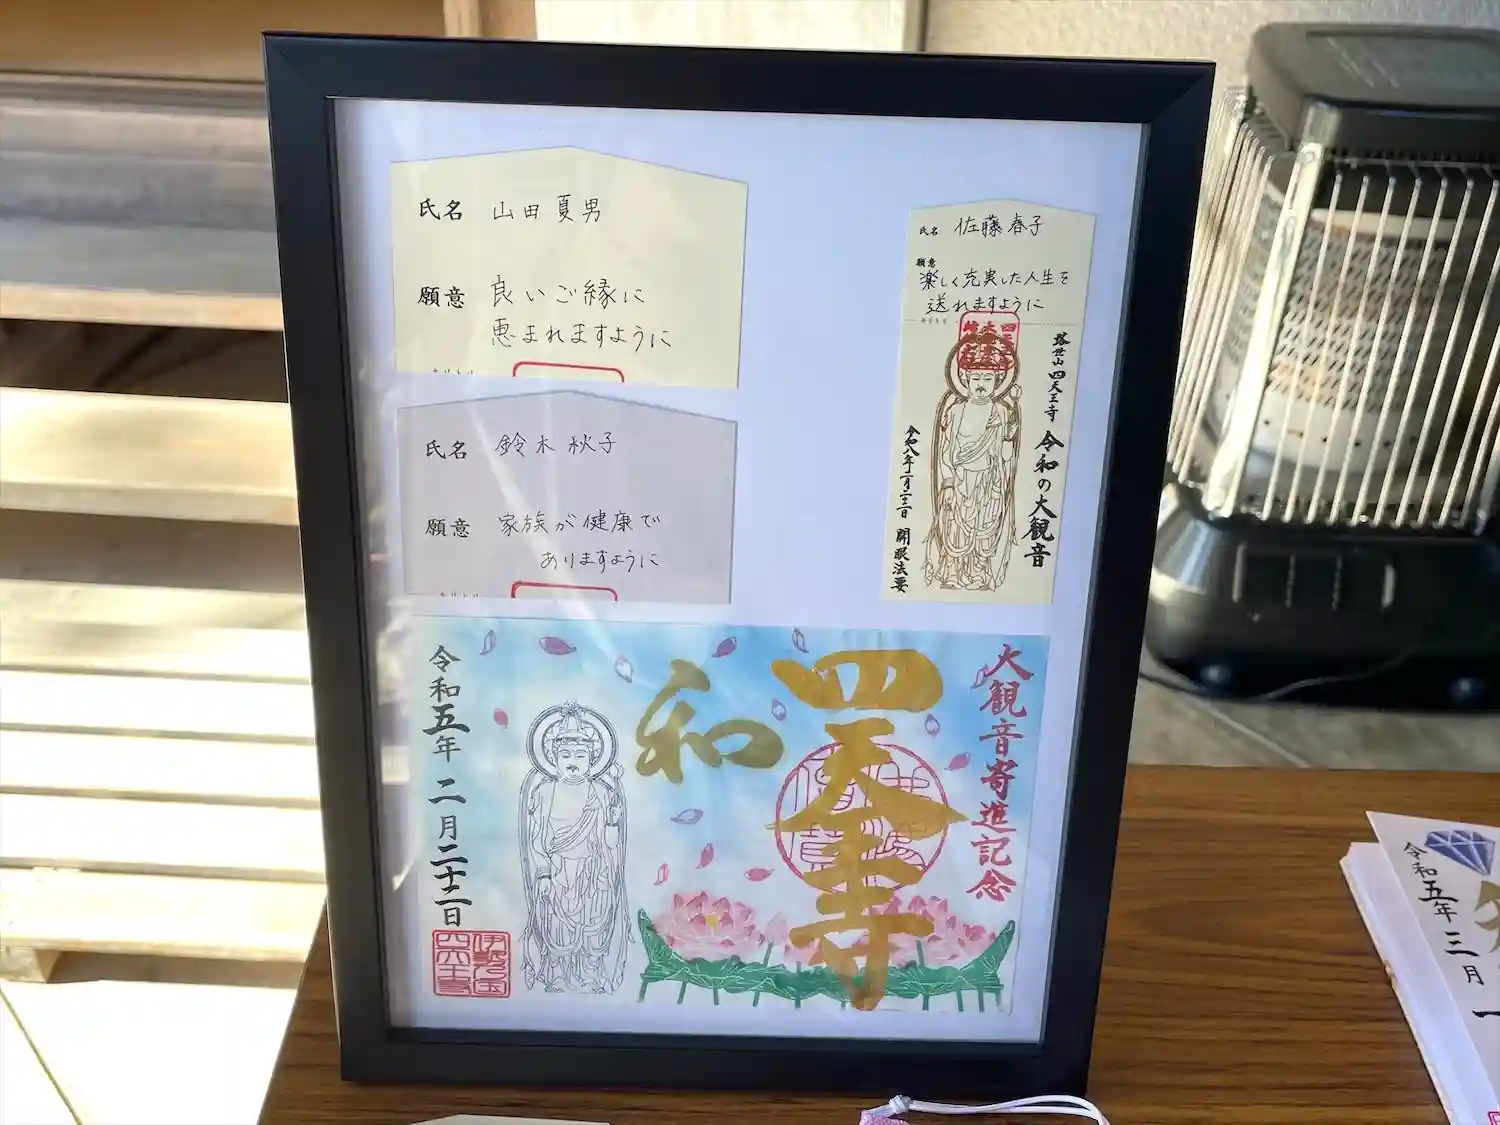 氏名 山田 夏男
願意 良いご縁に
恵まれますように
氏名 鈴木 秋子
願意 家族が健康で
ありますように
氏名 佐藤 春子
願意
楽しく充実した人生を
送れますように
塔世山 四天王寺 令和の大観音
令和八年二月二十二日 開眼法要
大観音寄進記念
四天王寺
和
令和五年 二月二十二日
伊勢の国
四天王寺
令和五年 三月 一